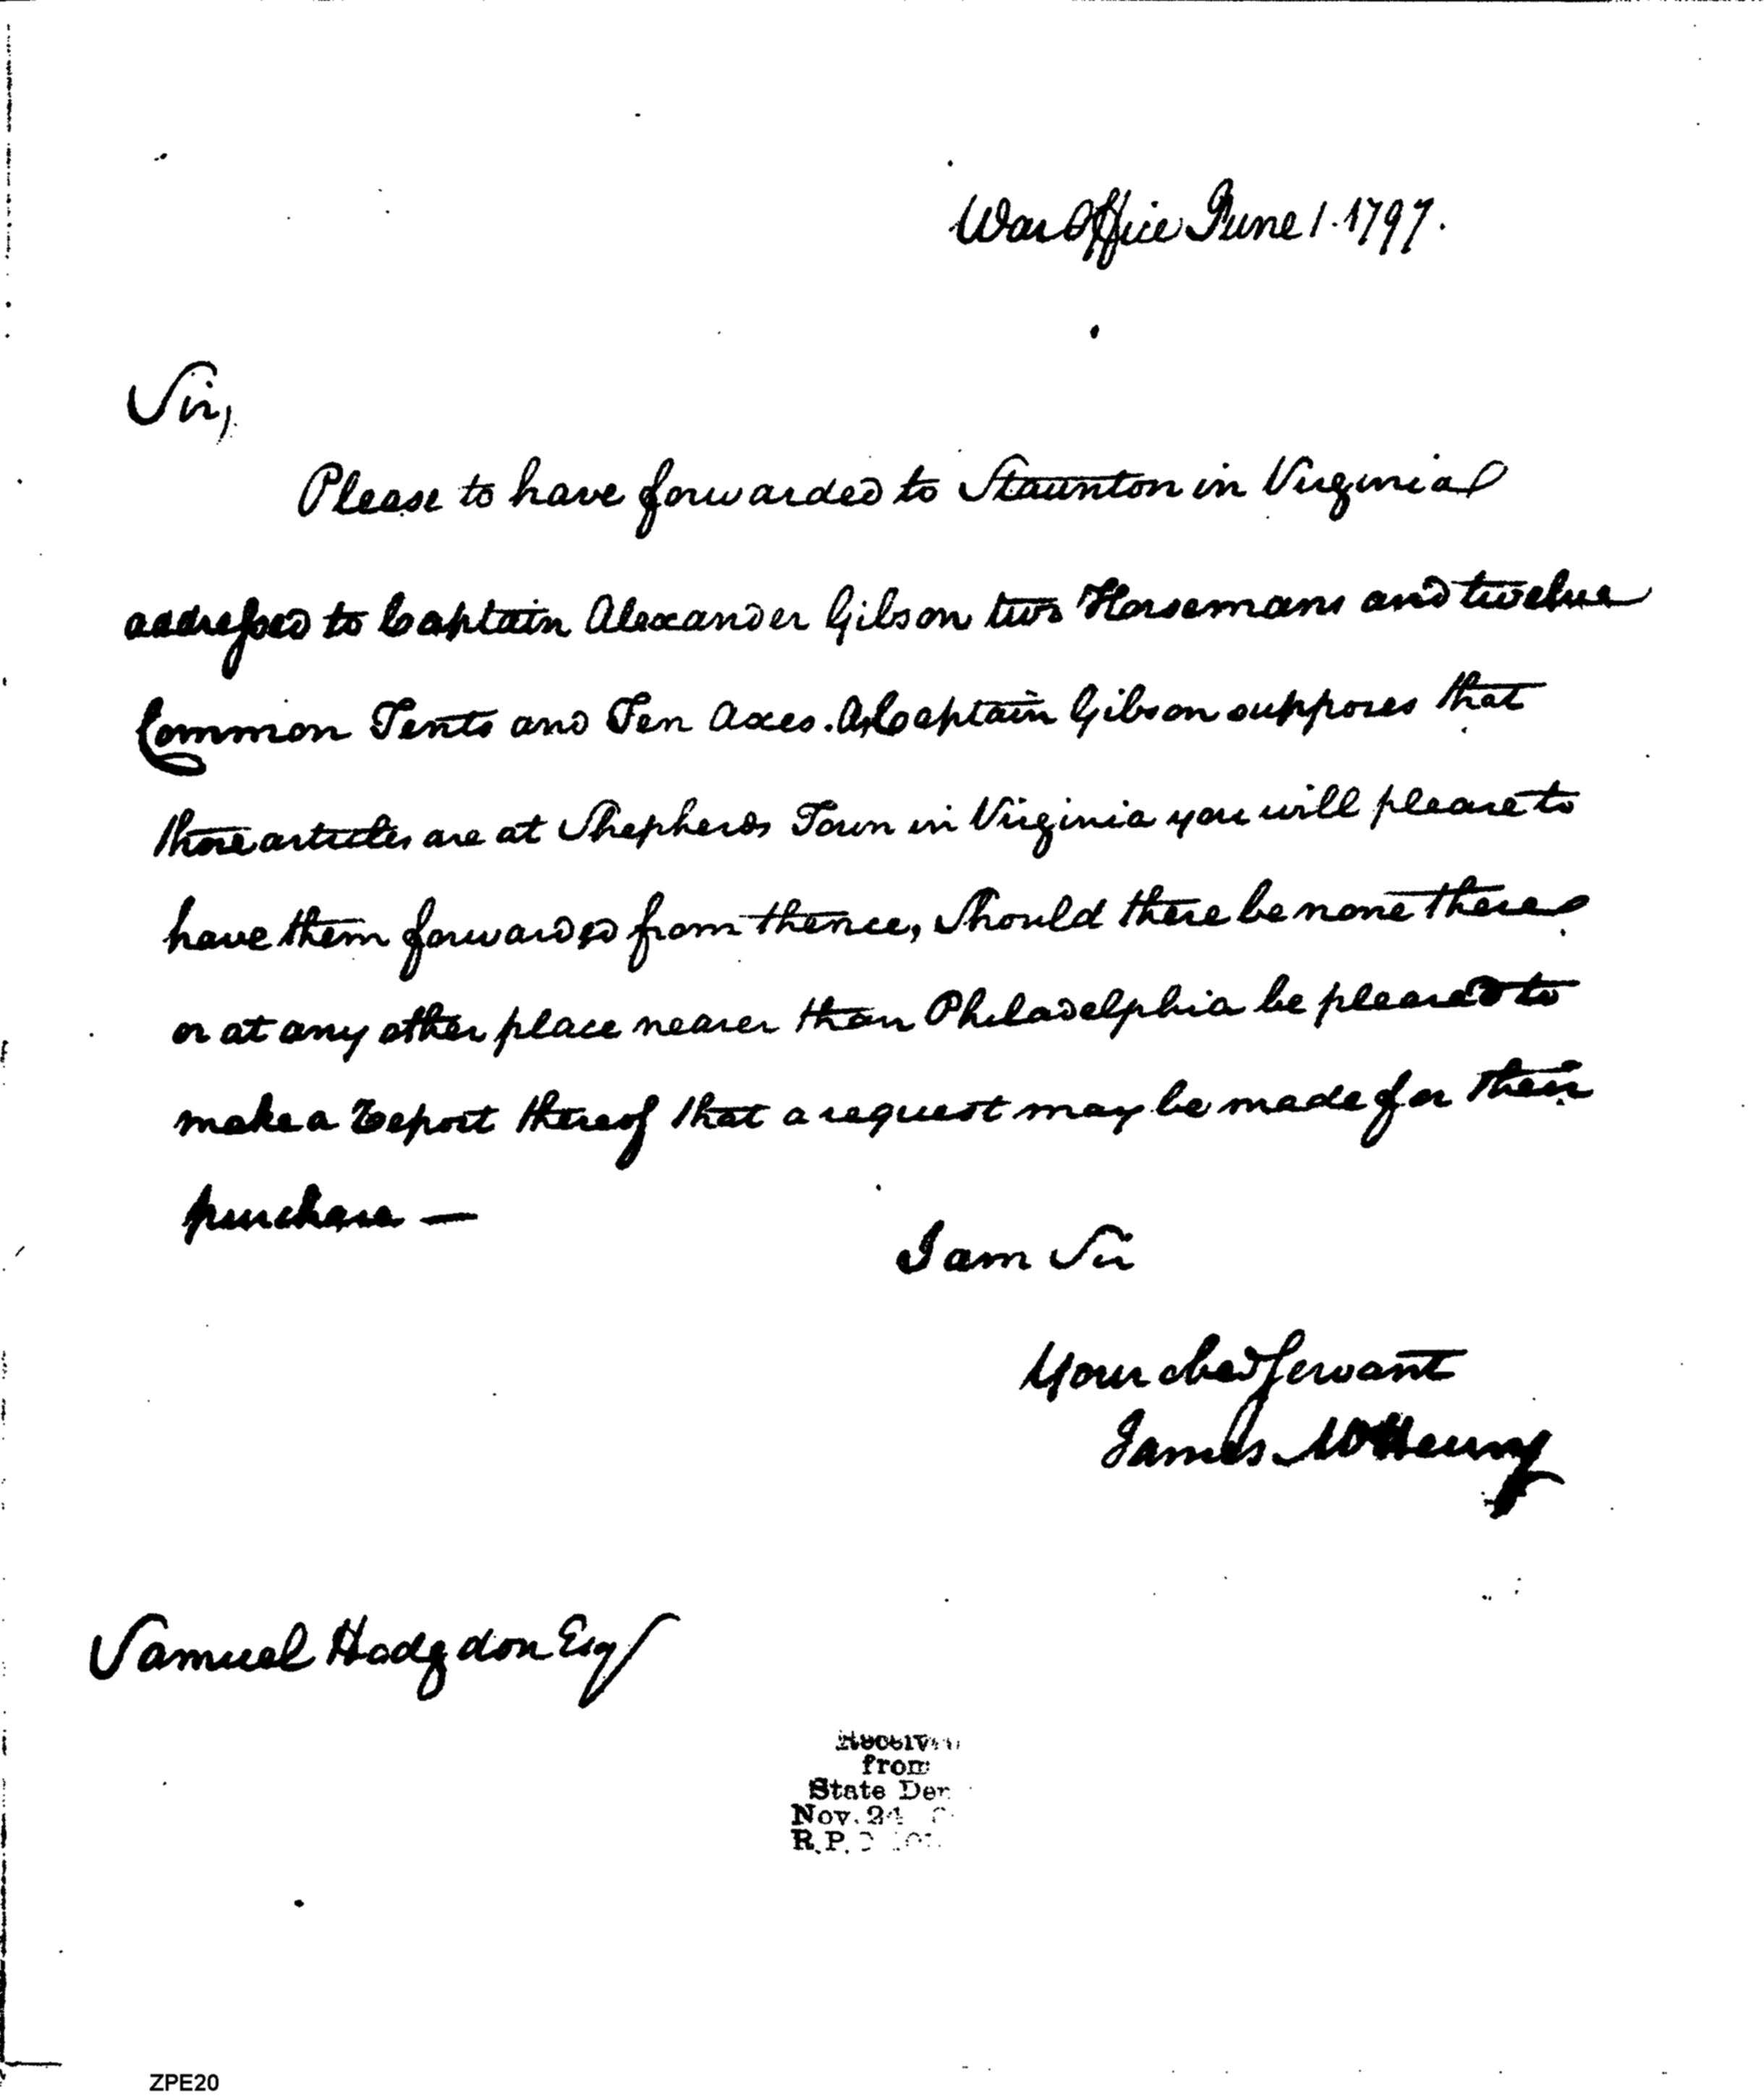 War Office June 1. 1797.
Sir,
Please to have forwarded to Staunton in Virginia
addressed to Captain Alexander Gibson two Horsemans and twelve
Common Tents and Ten Axes. As Captain Gibson supposes that
those articles are at Shepherds Town in Virginia you will please to
have them forwarded from thence, Should there be none there
or at any other place nearer than Philadelphia be pleased to
make a Report thereof that a request may be made for their
purchase —
I am Sir
Your obed Servant
James McHenry
Samuel Hodgdon Esq
Received
from
State Dep
Nov. 24
R.P.
ZPE20